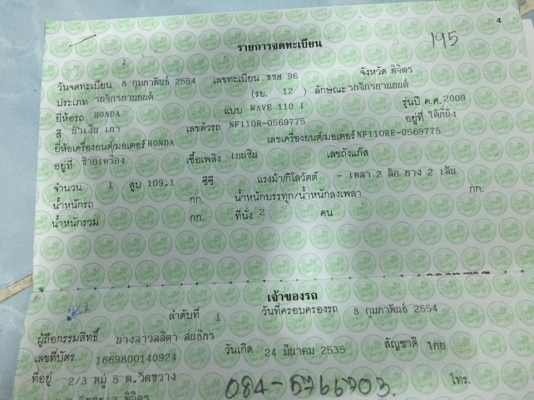 4
รายการจดทะเบียน
195
วันจดทะเบียน 8 กุมภาพันธ์ 2554 เลขทะเบียน ขขษ 96 จังหวัด พิจิตร
ประเภท รถจักรยานยนต์ (รย. 12 ) ลักษณะ รถจักรยานยนต์
ยี่ห้อรถ HONDA แบบ WAVE 110 I รุ่นปี ค.ศ. 2009
สี น้ำเงิน เทา เลขตัวรถ NF110R-0569775 อยู่ที่ ใต้ที่นั่ง
ยี่ห้อเครื่องยนต์/มอเตอร์ HONDA เลขเครื่องยนต์/มอเตอร์ NF110RE-0569775
อยู่ที่ ซ้ายเครื่อง เชื้อเพลิง เบนซิน เลขถังแก๊ส
จำนวน 1 สูบ 109.1 ซีซี แรงม้า/กิโลวัตต์ - เพลา 2 ล้อ ยาง 2 เส้น
น้ำหนักรถ กก. น้ำหนักบรรทุก/น้ำหนักลงเพลา กก.
น้ำหนักรวม กก. ที่นั่ง 2 คน
เจ้าของรถ
ลำดับที่ 1 วันที่ครอบครองรถ 8 กุมภาพันธ์ 2554
ผู้ถือกรรมสิทธิ์ นางสาวลลิตา
เลขที่บัตร 1669800140924 วันเกิด 24 มีนาคม 2535 สัญชาติ ไทย
ที่อยู่ 2/3 หมู่ 5 ต.วัดขวาง 084-5766703. โทร.